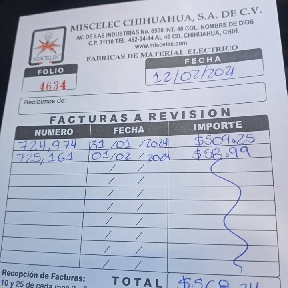 MISCELEC CHIHUAHUA, S.A. DE C.V.
AV. DE LAS INDUSTRIAS No. 6508 INT. 46 COL. NOMBRE DE DIOS
C.P. 31110 TEL. 482-34-44 AL 46 CD. CHIHUAHUA, CHIH.
www.miscelec.com
FABRICAS DE MATERIAL ELECTRICO
MISCELEC
FOLIO
4634
FECHA
12/02/2024
Recibimos de:
FACTURAS A REVISION
NUMERO FECHA IMPORTE
724,974 31/01/2024 $509.25
725,161 01/02/2024 $58.99
Recepción de Facturas:
10 y 25 de cada
TOTAL $568.24